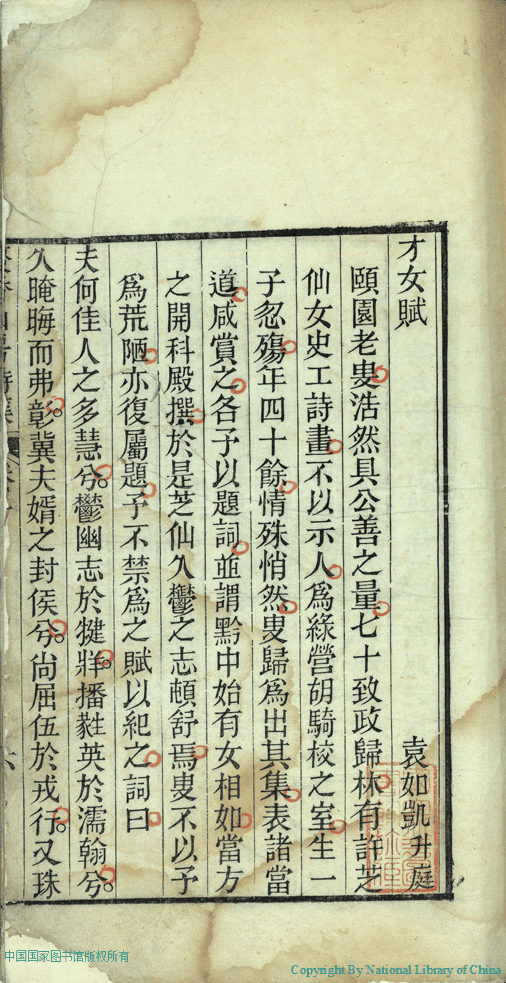 才女賦
袁如凱升庭
頤園老叟浩然具公善之量七十致政歸林有許芝
仙女史工詩畫不以示人爲綠營胡騎校之室生一
子忽殤年四十餘情殊悄然叟歸爲出其集表諸當
道咸賞之各予以題詞並謂黔中始有女相如當方
之開科殿撰於是芝仙久鬱之志頗舒焉叟不以予
爲荒陋亦復屬題予不禁爲之賦以紀之詞曰
夫何佳人之多慧兮鬱幽志於犍牂播蕤英於濡翰兮
久晻晦而弗彰冀夫婿之封侯兮尙屈伍於戎行又珠
六
中国国家图书馆版权所有
Copyright By National Library of China